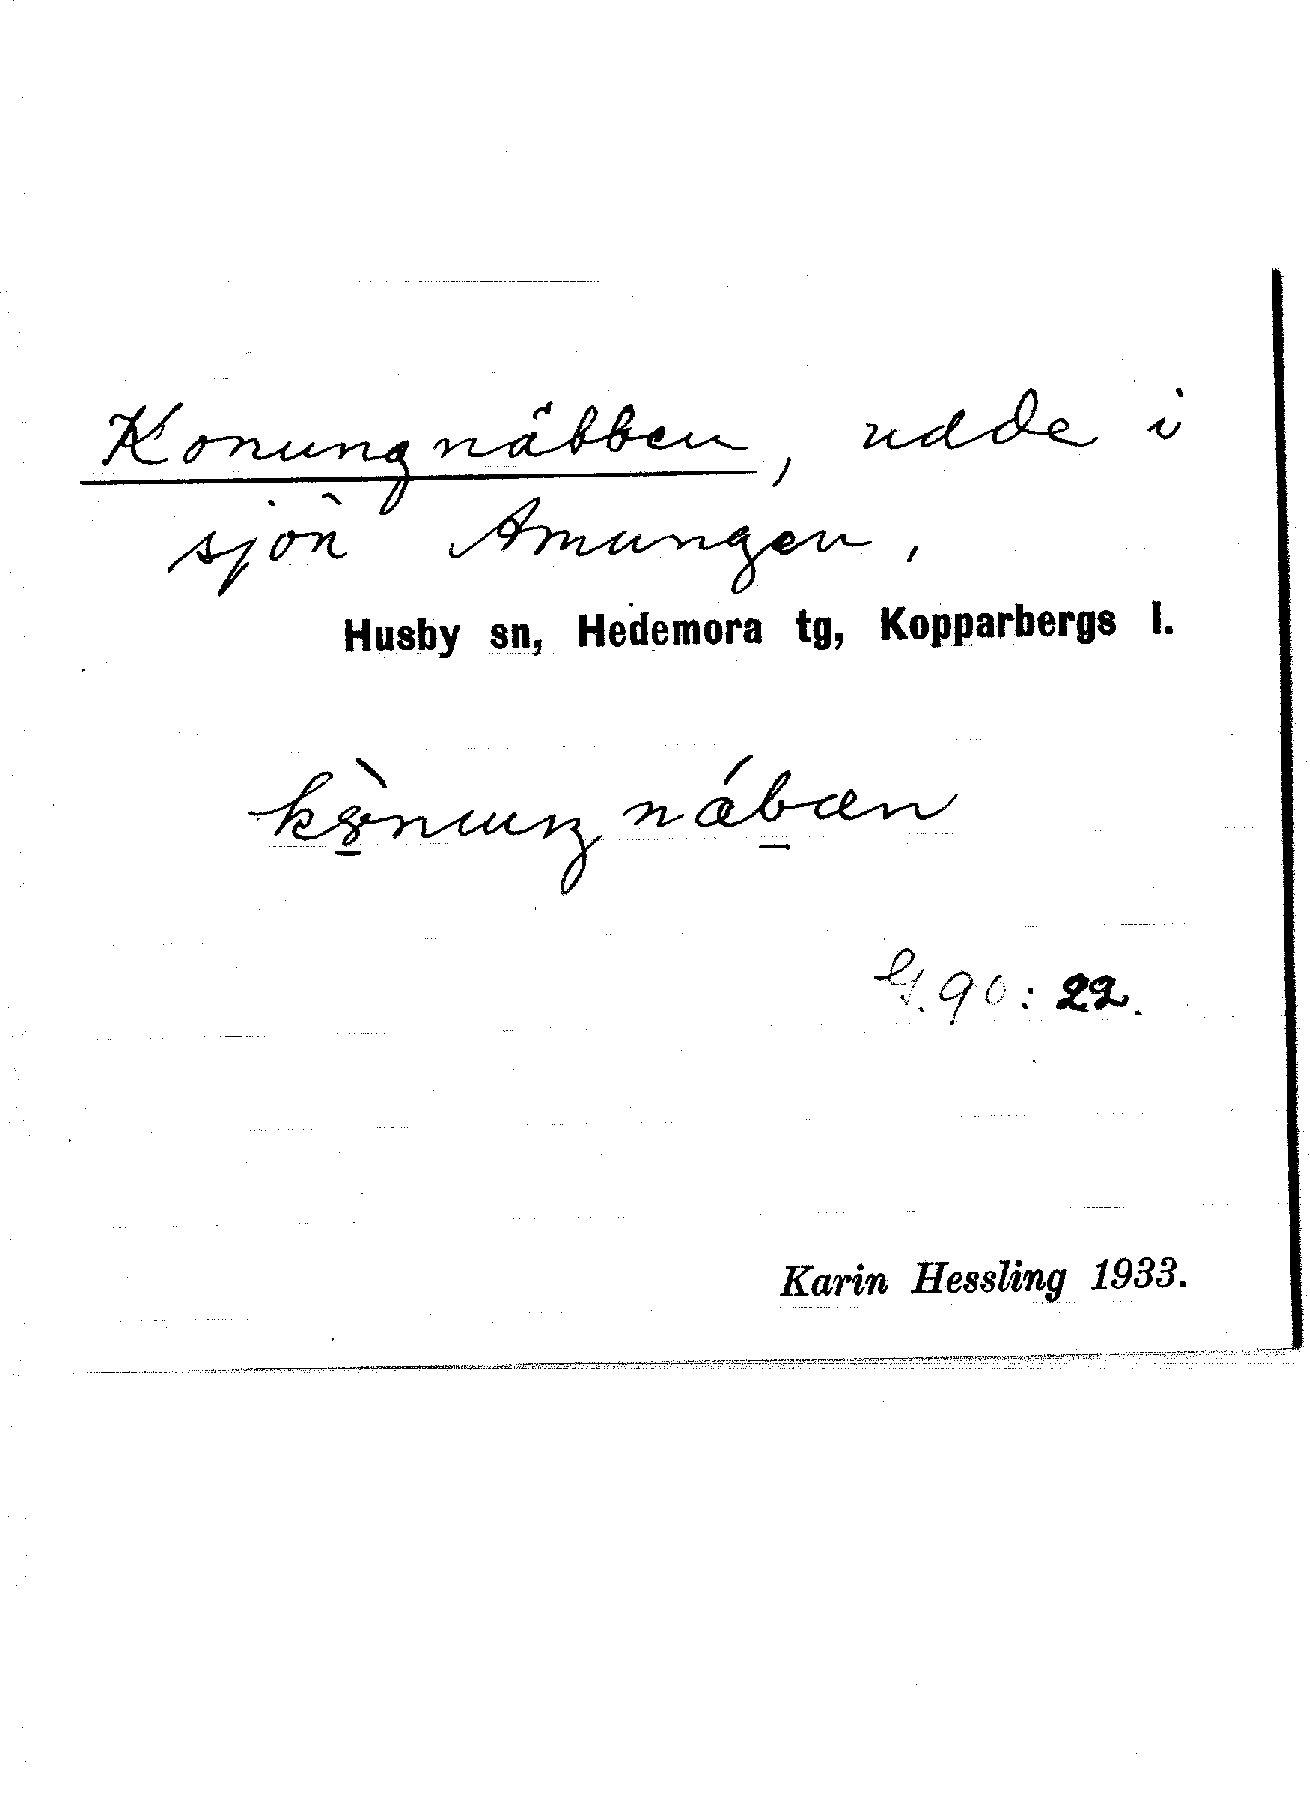 Konungnäbben, udde i
sjön Amungen,
Husby sn, Hedemora tg, Kopparbergs l.
G. 90: 22.
Karin Hessling 1933.